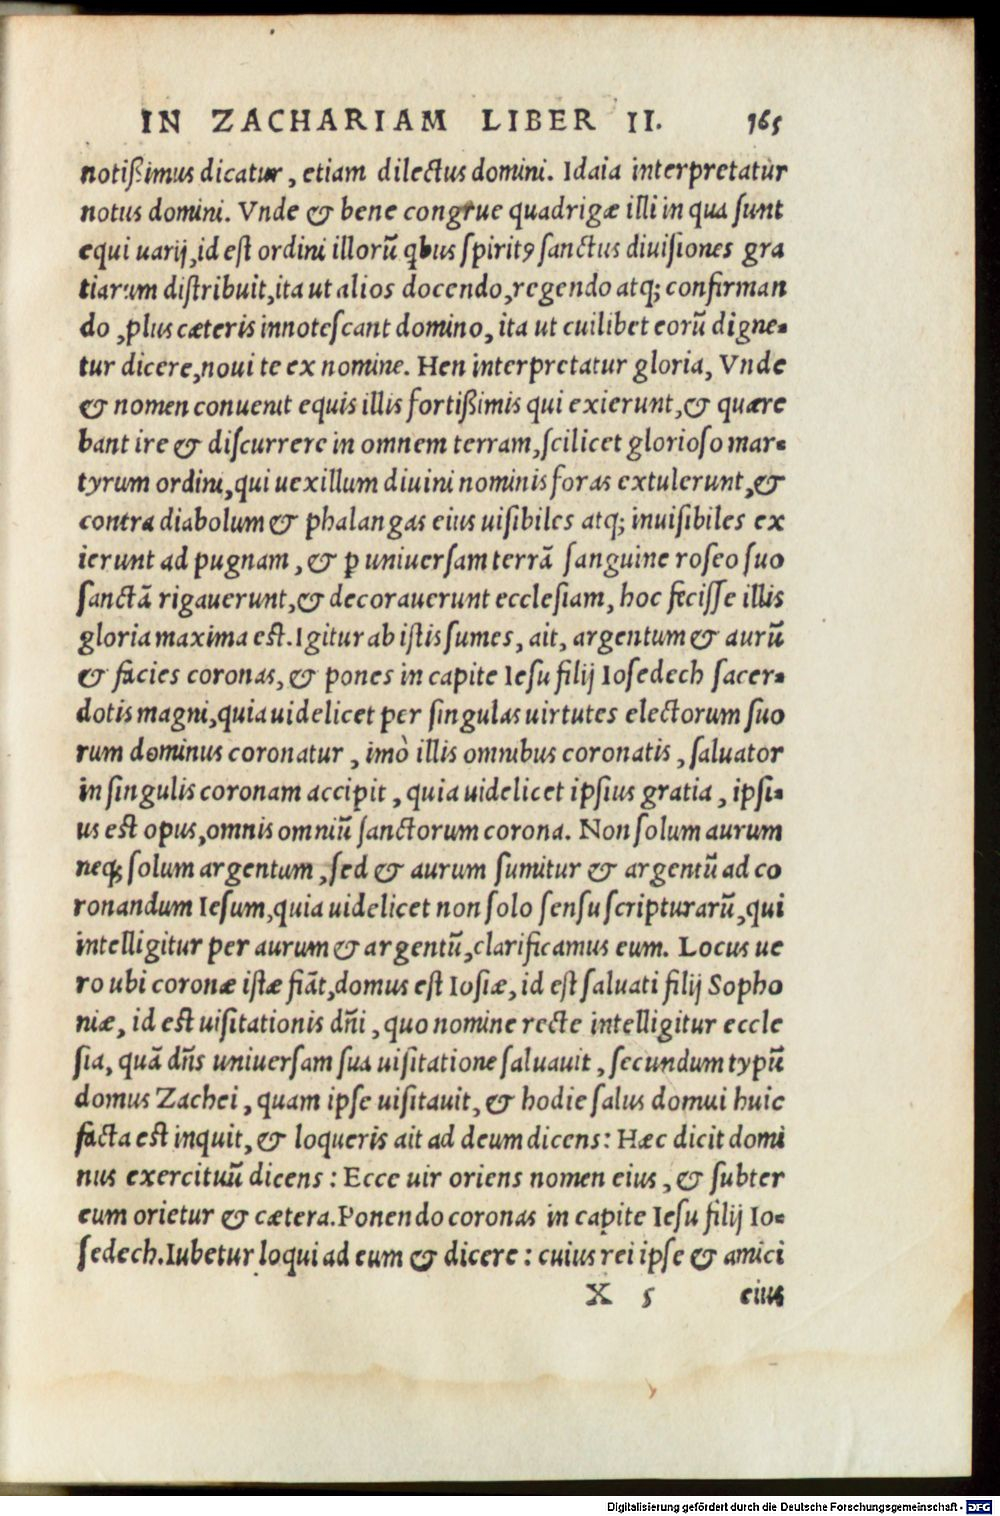 IN ZACHARIAM LIBER II. 165
notißimus dicatur, etiam dilectus domini. Idaia interpretatur
notus domini. Vnde & bene congrue quadrigæ illi in qua sunt
equi uarij, id est ordini illorū qbus spiritꝰ sanctus diuisiones gra
tiarum distribuit, ita ut alios docendo, regendo atq; confirman
do, plus cæteris innotescant domino, ita ut cuilibet eorū digne-
tur dicere, noui te ex nomine. Hen interpretatur gloria, Vnde
& nomen conuenit equis illis fortißimis qui exierunt, & quære
bant ire & discurrere in omnem terram, scilicet glorioso mar-
tyrum ordini, qui uexillum diuini nominis foras extulerunt, &
contra diabolum & phalangas eius uisibiles atq; inuisibiles ex
ierunt ad pugnam, & ꝑ uniuersam terrā sanguine roseo suo
sanctā rigauerunt, & decorauerunt ecclesiam, hoc fecisse illis
gloria maxima est. Igitur ab istis sumes, ait, argentum & aurū
& facies coronas, & pones in capite Iesu filij Iosedech sacer-
dotis magni, quia uidelicet per singulas uirtutes electorum suo
rum dominus coronatur, imò illis omnibus coronatis, saluator
in singulis coronam accipit, quia uidelicet ipsius gratia, ipsi-
us est opus, omnis omniū sanctorum corona. Non solum aurum
neq; solum argentum, sed & aurum sumitur & argentū ad co
ronandum Iesum, quia uidelicet non solo sensu scripturarū, qui
intelligitur per aurum & argentū, clarificamus eum. Locus ue
ro ubi coronæ istæ fiāt, domus est Iosiæ, id est saluati filij Sopho
niæ, id est uisitationis dñi, quo nomine recte intelligitur eccle
sia, quā dñs uniuersam sua uisitatione saluauit, secundum typū
domus Zachei, quam ipse uisitauit, & hodie salus domui huic
facta est inquit, & loqueris ait ad deum dicens: Hæc dicit domi
nus exercituū dicens: Ecce uir oriens nomen eius, & subter
eum orietur & cætera. Ponendo coronas in capite Iesu filij Io-
sedech. Iubetur loqui ad eum & dicere: cuius rei ipse & amici
X 5 eius
Digitalisierung gefördert durch die Deutsche Forschungsgemeinschaft - DFG